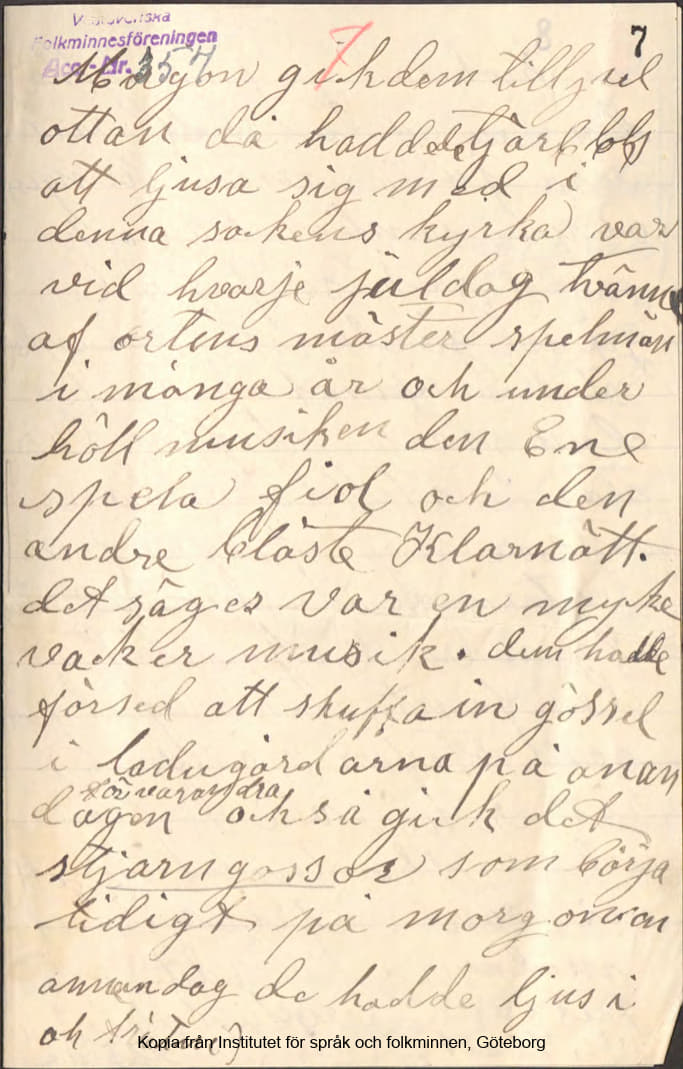 Västsvenska
Folkminnesföreningen
Acc.-Nr. 357
7
7
Morgon gikdem till jul
ottan då hadde de tjärbloß
att ljusa sig med i
denna sockens kyrka var
vid hvarje juldag tvänne
af ortens mäster spelmän
i många år och under
höll musiken den Ene
spela fiol och den
andre blåste Klarnätt.
det säges var en myke
vacker musik. dem hadde
försed att skuffa in gössel
i ladugårdarna på anan
för varandra
dagen också gick det
stjarngossor som börja
tidigt på morgonen
annandag de hadde ljus i
Kopia från Institutet för språk och folkminnen, Göteborg